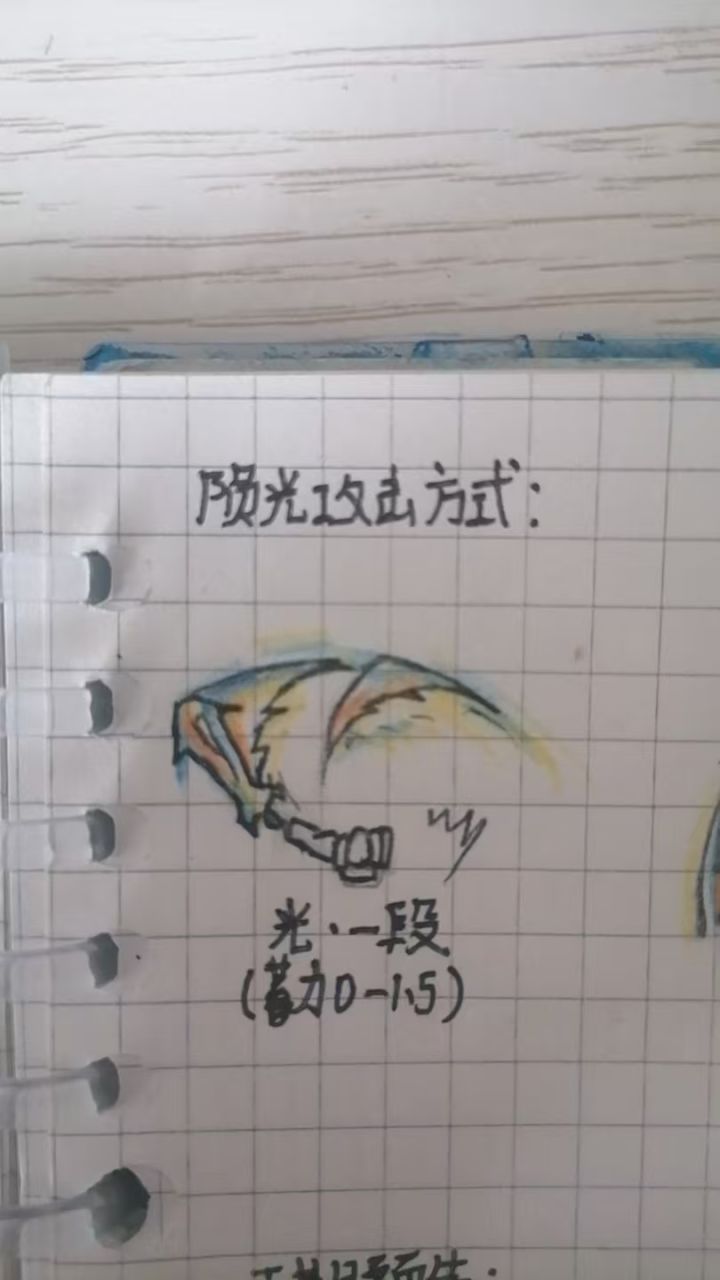 阳光攻击方式：
光·一段
(蓄力0-1.5)